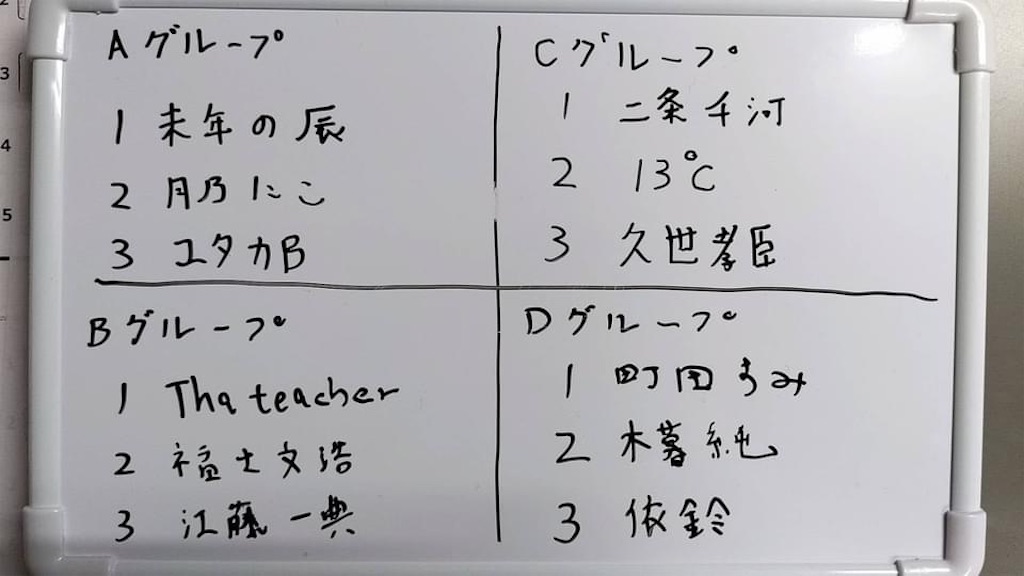 Aグループ
1 未年の辰
2 月乃にこ
3 ユタカB
Bグループ
1 Tha teacher
2 福士文浩
3 江藤一典
Cグループ
1 二条千河
2 13℃
3 久世孝臣
Dグループ
1 町田すみ
2 木暮純
3 依鈴
2
3
4
5